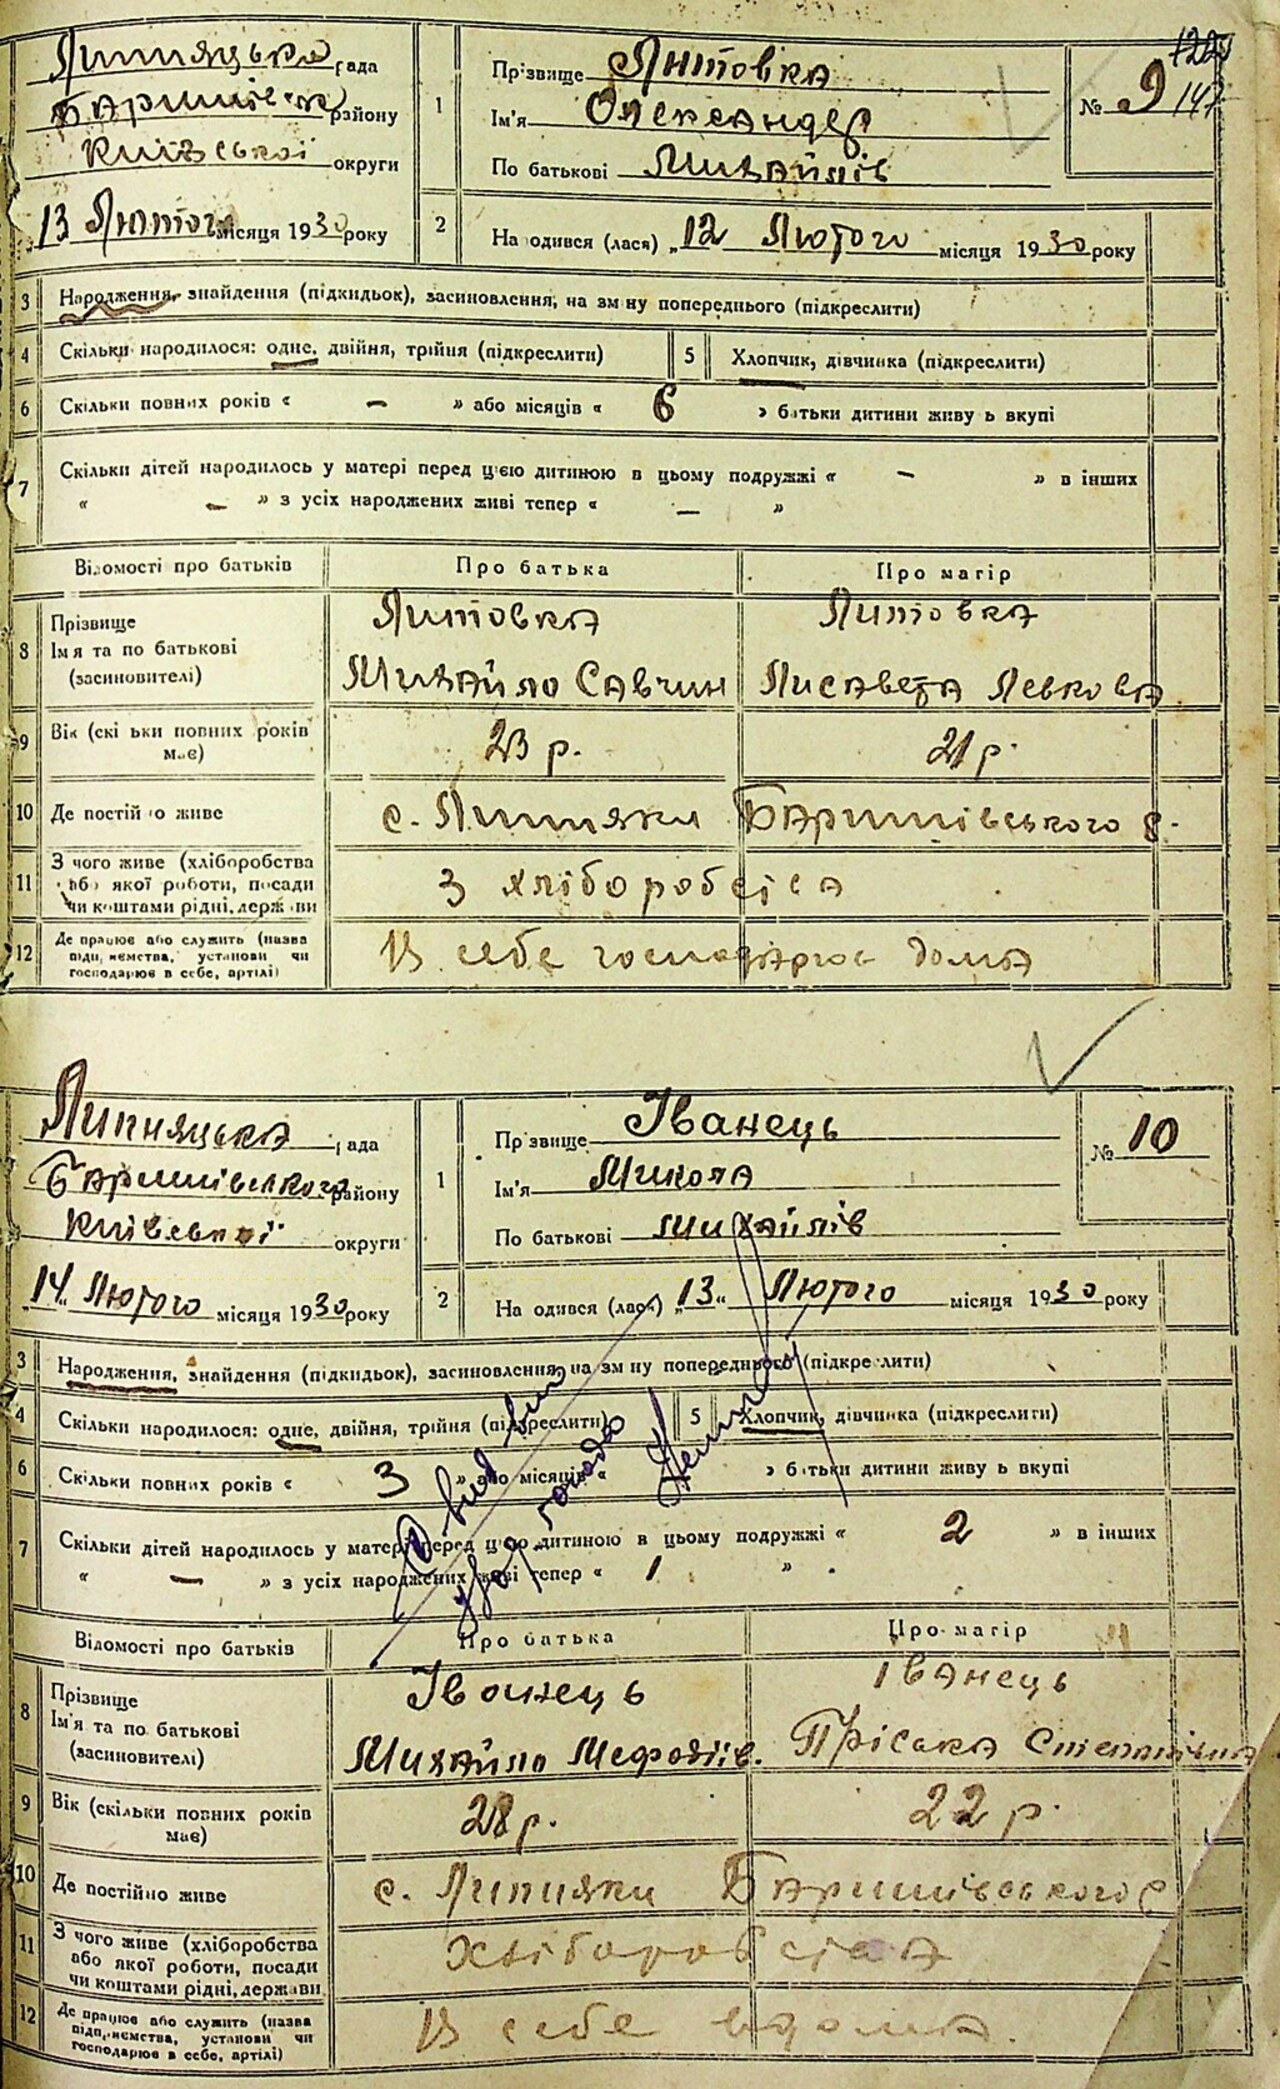 Липняцька рада
Баришівськ району
Київської округи
13 Лютого місяця 1930 року
1
Прізвище Литовка
Ім'я Олександер
По батькові Михайлів
№ 9
147
2
На одився (лася) „12 Лютого місяця 1930 року
3 Народження, знайдення (підкидьок), засиновлення, на зм ну попереднього (підкреслити)
4 Скільки народилося: одне, двійня, трійня (підкреслити)
5 Хлопчик, дівчинка (підкреслити)
6 Скільки повних років « – » або місяців « 6 » батьки дитини живу ь вкупі
7 Скільки дітей народилось у матері перед цією дитиною в цьому подружжі « – » в інших
« – » з усіх народжених живі тепер « – »
Відомості про батьків Про батька Про матір
8 Прізвище
Ім'я та по батькові
(засиновителі)
Литовка Литовка
Михайло Савчин Лисавета Левкова
9 Вік (скі ьки повних років
має)
23 р. 21 р.
10 Де постій о живе
с. Липняки Баришівського р.
11 З чого живе (хліборобства
або якої роботи, посади
чи коштами рідні, держ ви
З хліборобства
12 Де працює або служить (назва
підп, ємства, установи чи
господарює в себе, артілі)
В себе господарює дома
Липняцька рада
Баришівського району
Київської округи
14 „ Лютого місяця 1930 року
1
Пр звище Іванець
Ім'я Микола
По батькові Михайлів
№ 10
2
На одився (лася) „13 „ Лютого місяця 1930 року
3 Народження, знайдення (підкидьок), засиновлення, на зм ну попереднього (підкре лити)
4 Скільки народилося: одне, двійня, трійня (підкреслити)
5 Хлопчик, дівчинка (підкреслити)
6 Скільки повних років « 3 » або місяців « » батьки дитини живу ь вкупі
7 Скільки дітей народилось у матері перед цією дитиною в цьому подружжі « 2 » в інших
« – » з усіх народжених живі тепер « 1 »
Відомості про батьків Про батька Про матір
8 Прізвище
Ім'я та по батькові
(засиновителі)
Іванець Іванець
Михайло Мефодіїв. Пріська Степанівна
9 Вік (скільки повних років
має)
28 р. 22 р.
10 Де постійно живе
с. Липняки Баришівського р
11 З чого живе (хліборобства
або якої роботи, посади
чи коштами рідні, держави
хліборобства
12 Де працює або служить (назва
підп, иємства, установи чи
господарює в себе, артілі)
В себе вдома.